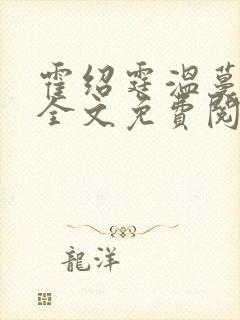 霍绍霆温蔓
全文免費閱
龍洋